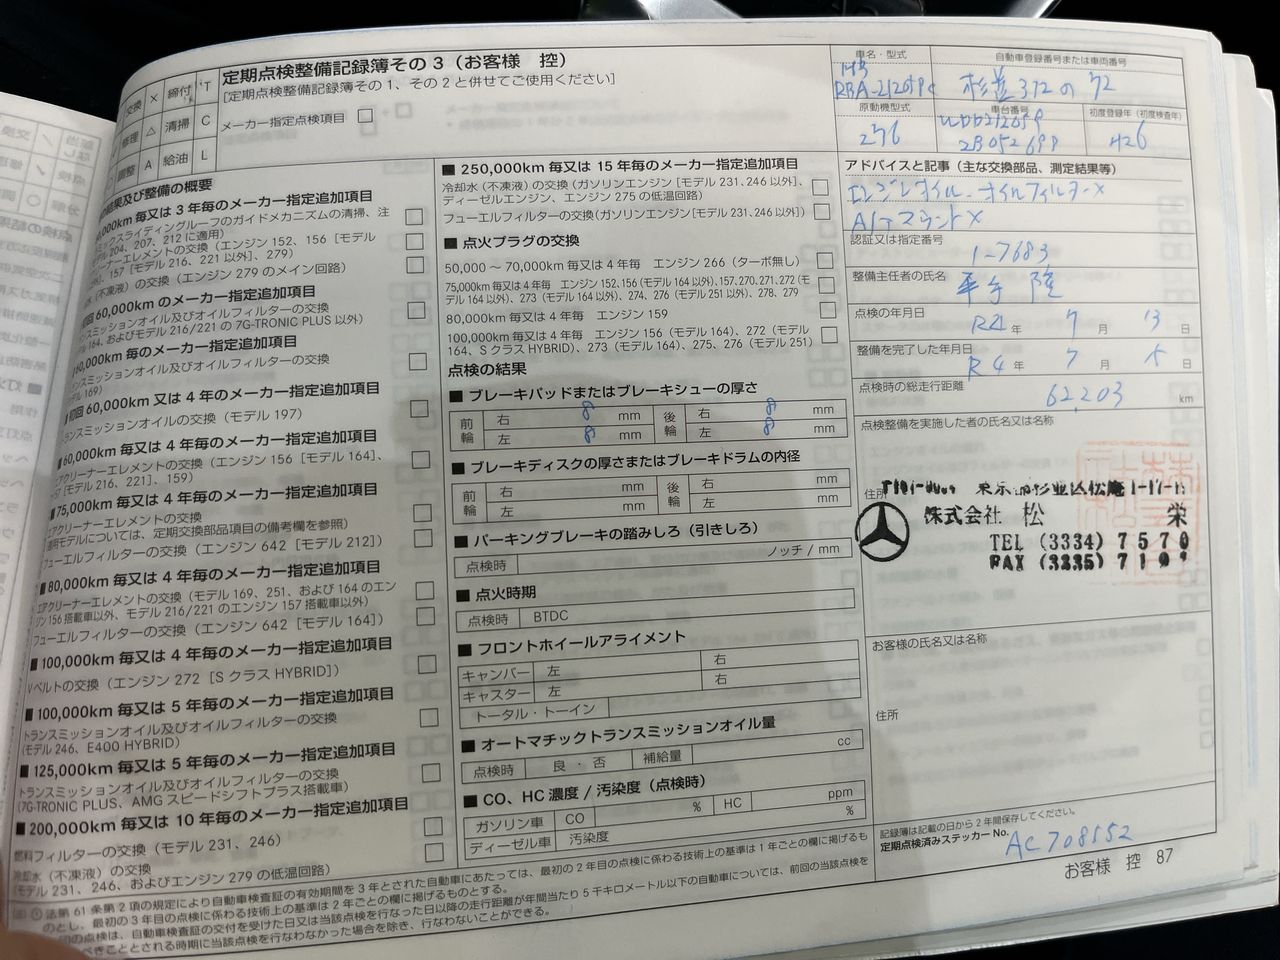 交換 × 締付 T
修理 △ 清掃 C
調整 A 給油 L
定期点検整備記録簿その3（お客様 控）
[定期点検整備記録簿その1、その2と併せてご使用ください]
メーカー指定点検項目
車名・型式
RBA-212059C
自動車登録番号または車両番号
杉並 372 の 72
原動機型式
276
車台番号
WDD212059
2B052699
初度登録年（初度検査年）
H26
結果及び整備の概要
000km 毎又は 3 年毎のメーカー指定追加項目
ミックスライディングルーフのガイドメカニズムの清掃、注
204、207、212 に適用)
ーナーエレメントの交換（エンジン 152、156 [モデル
、157 [モデル 216、221 以外]、279)
水（不凍液）の交換（エンジン 279 のメイン回路）
初回 60,000km のメーカー指定追加項目
ランスミッションオイル及びオイルフィルターの交換
164、およびモデル 216/221 の 7G-TRONIC PLUS 以外)
60,000km 毎のメーカー指定追加項目
ンスミッションオイル及びオイルフィルターの交換
169)
初回 60,000km 又は 4 年毎のメーカー指定追加項目
ランスミッションオイルの交換（モデル 197）
60,000km 毎又は 4 年毎のメーカー指定追加項目
エアクリーナーエレメントの交換（エンジン 156 [モデル 164]、
157 [モデル 216、221]、159)
■ 75,000km 毎又は 4 年毎のメーカー指定追加項目
エアクリーナーエレメントの交換
(適用モデルについては、定期交換部品項目の備考欄を参照)
フューエルフィルターの交換（エンジン 642 [モデル 212]）
■ 80,000km 毎又は 4 年毎のメーカー指定追加項目
エアクリーナーエレメントの交換（モデル 169、251、および 164 のエン
ジン 156 搭載車以外、モデル 216/221 のエンジン 157 搭載車以外）
フューエルフィルターの交換（エンジン 642 [モデル 164]）
■ 100,000km 毎又は 4 年毎のメーカー指定追加項目
Vベルトの交換（エンジン 272 [S クラス HYBRID]）
■ 100,000km 毎又は 5 年毎のメーカー指定追加項目
トランスミッションオイル及びオイルフィルターの交換
(モデル 246、E400 HYBRID)
■ 125,000km 毎又は 5 年毎のメーカー指定追加項目
トランスミッションオイル及びオイルフィルターの交換
(7G-TRONIC PLUS、AMG スピードシフトプラス搭載車)
■ 200,000km 毎又は 10 年毎のメーカー指定追加項目
燃料フィルターの交換（モデル 231、246）
冷却水（不凍液）の交換
(モデル 231、246、およびエンジン 279 の低温回路)
■ 250,000km 毎又は 15 年毎のメーカー指定追加項目
冷却水（不凍液）の交換（ガソリンエンジン [モデル 231.246 以外]、
ディーゼルエンジン、エンジン 275 の低温回路）
フューエルフィルターの交換（ガソリンエンジン[モデル 231、246 以外]）
■ 点火プラグの交換
50,000 ～ 70,000km 毎又は 4 年毎 エンジン 266（ターボ無し）
75,000km 毎又は 4 年毎 エンジン 152,156 (モデル 164 以外),157,270,271,272 (モ
デル 164 以外)、273 (モデル 164 以外)、274、276 (モデル 251 以外)、278、279
80,000km 毎又は 4 年毎 エンジン 159
100,000km 毎又は 4 年毎 エンジン 156（モデル 164）、272（モデル
164、S クラス HYBRID）、273（モデル 164）、275、276（モデル 251）
点検の結果
■ ブレーキパッドまたはブレーキシューの厚さ
前輪 右 8 mm 後輪 右 8 mm
左 8 mm 左 8 mm
■ ブレーキディスクの厚さまたはブレーキドラムの内径
前輪 右 mm 後輪 右 mm
左 mm 左 mm
■ パーキングブレーキの踏みしろ（引きしろ）
点検時 ノッチ / mm
■ 点火時期
点検時 BTDC
■ フロントホイールアライメント
キャンバー 左 右
キャスター 左 右
トータル・トーイン
■ オートマチックトランスミッションオイル量
点検時 良・否 補給量 cc
■ CO、HC 濃度 / 汚染度（点検時）
ガソリン車 CO % HC ppm
ディーゼル車 汚染度 %
アドバイスと記事（主な交換部品、測定結果等）
エンジンオイル・オイルフィルター×
認証又は指定番号
1-7683
整備主任者の氏名
平手 隆
点検の年月日
R4 年 7 月 13 日
整備を完了した年月日
R4 年 7 月 日
点検時の総走行距離
62,203 km
点検整備を実施した者の氏名又は名称
住所 東京都杉並区松庵1-17-
株式会社 松 栄
TEL (3334) 7570
FAX (3335)
お客様の氏名又は名称
住所
記録簿は記載の日から 2 年間保存してください。
定期点検済みステッカー No. AC708552
お客様 控 87
法第 61 条第 2 項の規定により自動車検査証の有効期間を 3 年とされた自動車にあたっては、最初の 2 年目の点検に係わる技術上の基準は 1 年ごとの欄に掲げるも
のとし、最初の 3 年目の点検に係わる技術上の基準は 2 年ごとの欄に掲げるものとする。
の点検は、自動車検査証の交付を受けた日又は当該点検を行なった日以降の走行距離が年間当たり 5 千キロメートル以下の自動車については、前回の当該点検を
べきこととされる時期に当該点検を行なわなかった場合を除き、行なわないことができる。